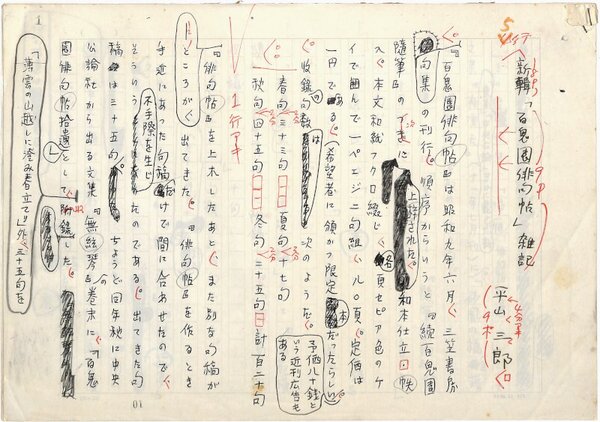 新輯「百鬼園俳句帖」雑記
平山三郎
『百鬼園俳句帖』は昭和九年六月、三笠書房
句集の刊行順序からいうと『続百鬼園
随筆』のつぎに上梓された。和本仕立 帙
入、本文和紙フクロ綴じ、各頁セピア色のケ
イで囲んで一ペエジ二句組、八〇頁。定価は
一円である。(希望者に頒かつ限定本だったらしい)
予価八十銭と
いう近刊広告も
ある
収録句数は次のようだ。
春句 三十三句 夏句 二十七句
秋句 四十五句 冬句 十五句 計百二十句
1行アキ
『俳句帖』を上木したあとに また別な句稿が
ところから出てきた。『俳句帖』を作るとき
手近にあった句稿だけで間に合わせたので
そういう不手際を生じたのである。出てきた句
稿は三十五句。ちょうど同年秋に中央
公論社から出る文集『無絃琴』の巻末に、「百鬼
園俳句帖拾遺」として附録した。
「薄雲の山越しに澄み春立てり」外、三十五句を